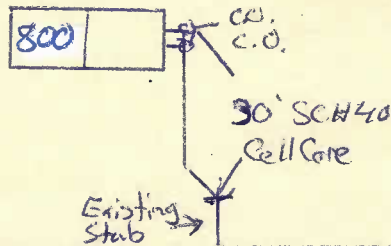 800
C.O.
C.O.
30' SCH40
Cell Core
Existing
Stub